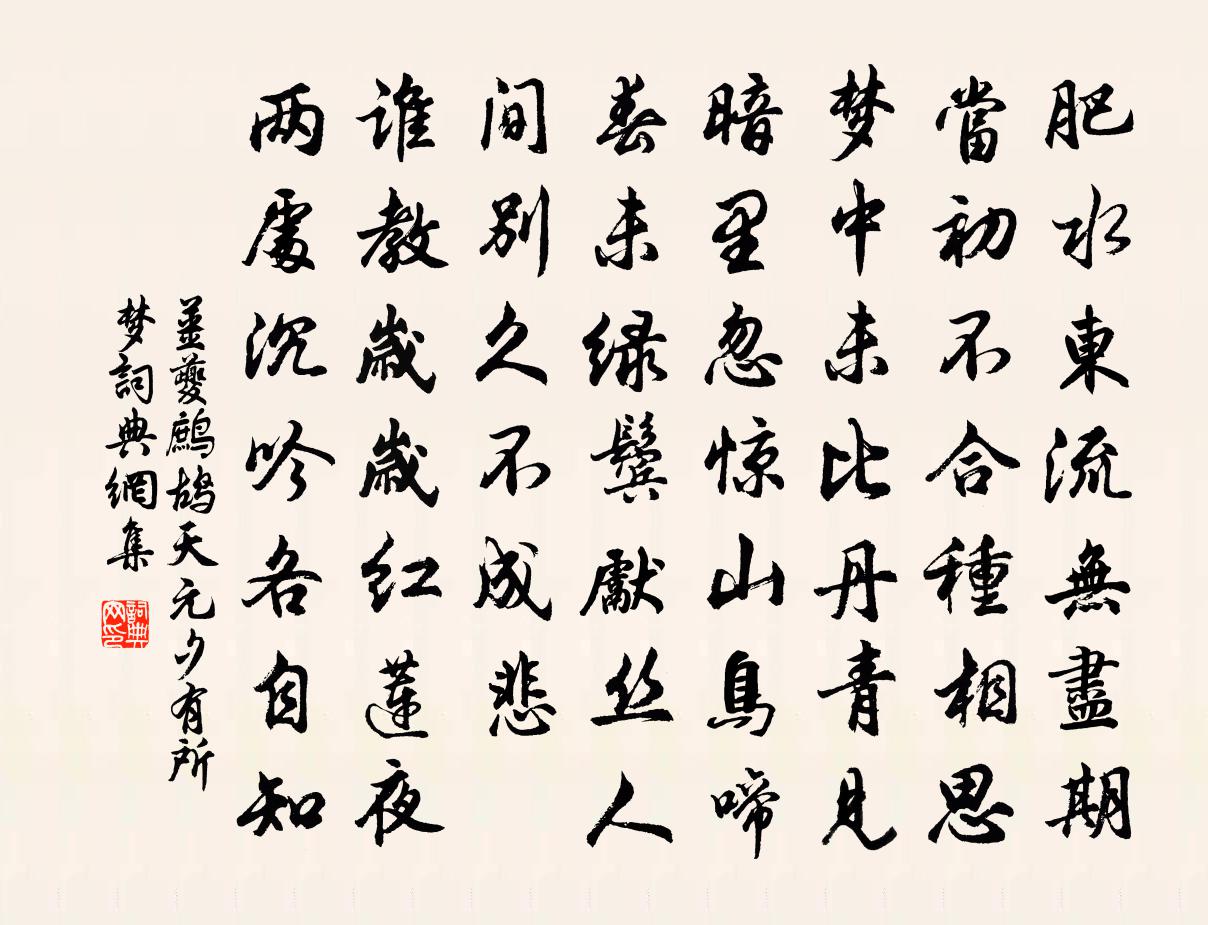 肥水東流無盡期
當初不合種相思
梦中未比丹青見
暗里忽惊山鳥啼
春未绿鬓獻丝人
间别久不成悲
谁教歲歲红蓮夜
两處沉吟各自知
姜夔鹧鸪天元夕有所
梦詞典網集
詞典
网印